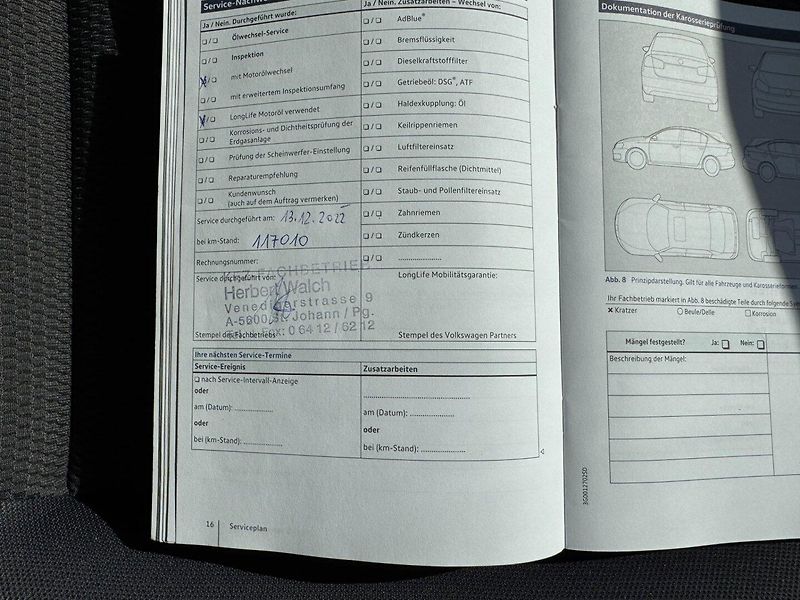 Service-Nachw
Ja / Nein. Durchgeführt wurde:
/ Ölwechsel-Service
/ Inspektion
X / mit Motorölwechsel
/ mit erweitertem Inspektionsumfang
X / LongLife Motoröl verwendet
/ Korrosions- und Dichtheitsprüfung der
Erdgasanlage
/ Prüfung der Scheinwerfer-Einstellung
/ Reparaturempfehlung
/ Kundenwunsch
(auch auf dem Auftrag vermerken)
Service durchgeführt am: 13.12.2022
bei km-Stand: 117010
Rechnungsnummer:
Service durchgeführt von:
KFZ-FACHBETRIEB
Herbert Walch
Venedigerstrasse 9
A-5600 St. Johann / Pg.
Fax: 0 64 12 / 62 12
Stempel des Fachbetriebs:
Ja / Nein. Zusatzarbeiten – Wechsel von:
/ AdBlue®
/ Bremsflüssigkeit
/ Dieselkraftstofffilter
/ Getriebeöl: DSG®, ATF
/ Haldexkupplung: Öl
/ Keilrippenriemen
/ Luftfiltereinsatz
/ Reifenfüllflasche (Dichtmittel)
/ Staub- und Pollenfiltereinsatz
/ Zahnriemen
/ Zündkerzen
/ ....................
LongLife Mobilitätsgarantie:
Stempel des Volkswagen Partners
Ihre nächsten Service-Termine
Service-Ereignis
nach Service-Intervall-Anzeige
oder
am (Datum): ..................
oder
bei (km-Stand): ..................
Zusatzarbeiten
..................................................
am (Datum): ..................
oder
bei (km-Stand): ..................
16 Serviceplan
Dokumentation der Karosserieprüfung
Abb. 8 Prinzipdarstellung. Gilt für alle Fahrzeuge und Karosserieformen.
Ihr Fachbetrieb markiert in Abb. 8 beschädigte Teile durch folgende
X Kratzer O Beule/Delle Korrosion
Mängel festgestellt? Ja: Nein:
Beschreibung der Mängel:
3G0012702SD